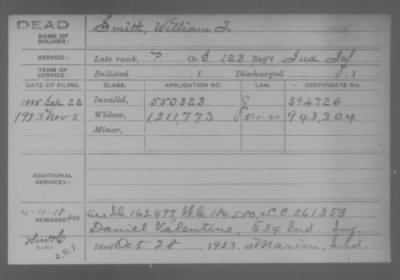 DEAD
NAME OF SOLDIER: Smith, William T.
SERVICE: Late rank, P Co. E 123 Reg't Ind Inf
TERM OF SERVICE: Enlisted , 1 Discharged , 1
DATE OF FILING. CLASS. APPLICATION NO. LAW. CERTIFICATE NO.
1885 Sep. 22 Invalid, 550323 394726
1923 Nov 5 Widow, 1211,773 5-1-20 943,304
Minor,
ADDITIONAL SERVICES:
REMARKS: 162497 184,580 C.C. 261353
Daniel Valentine, E 34 Ind Inf.
Died Oct 28, 1923, at Marion, Ind.